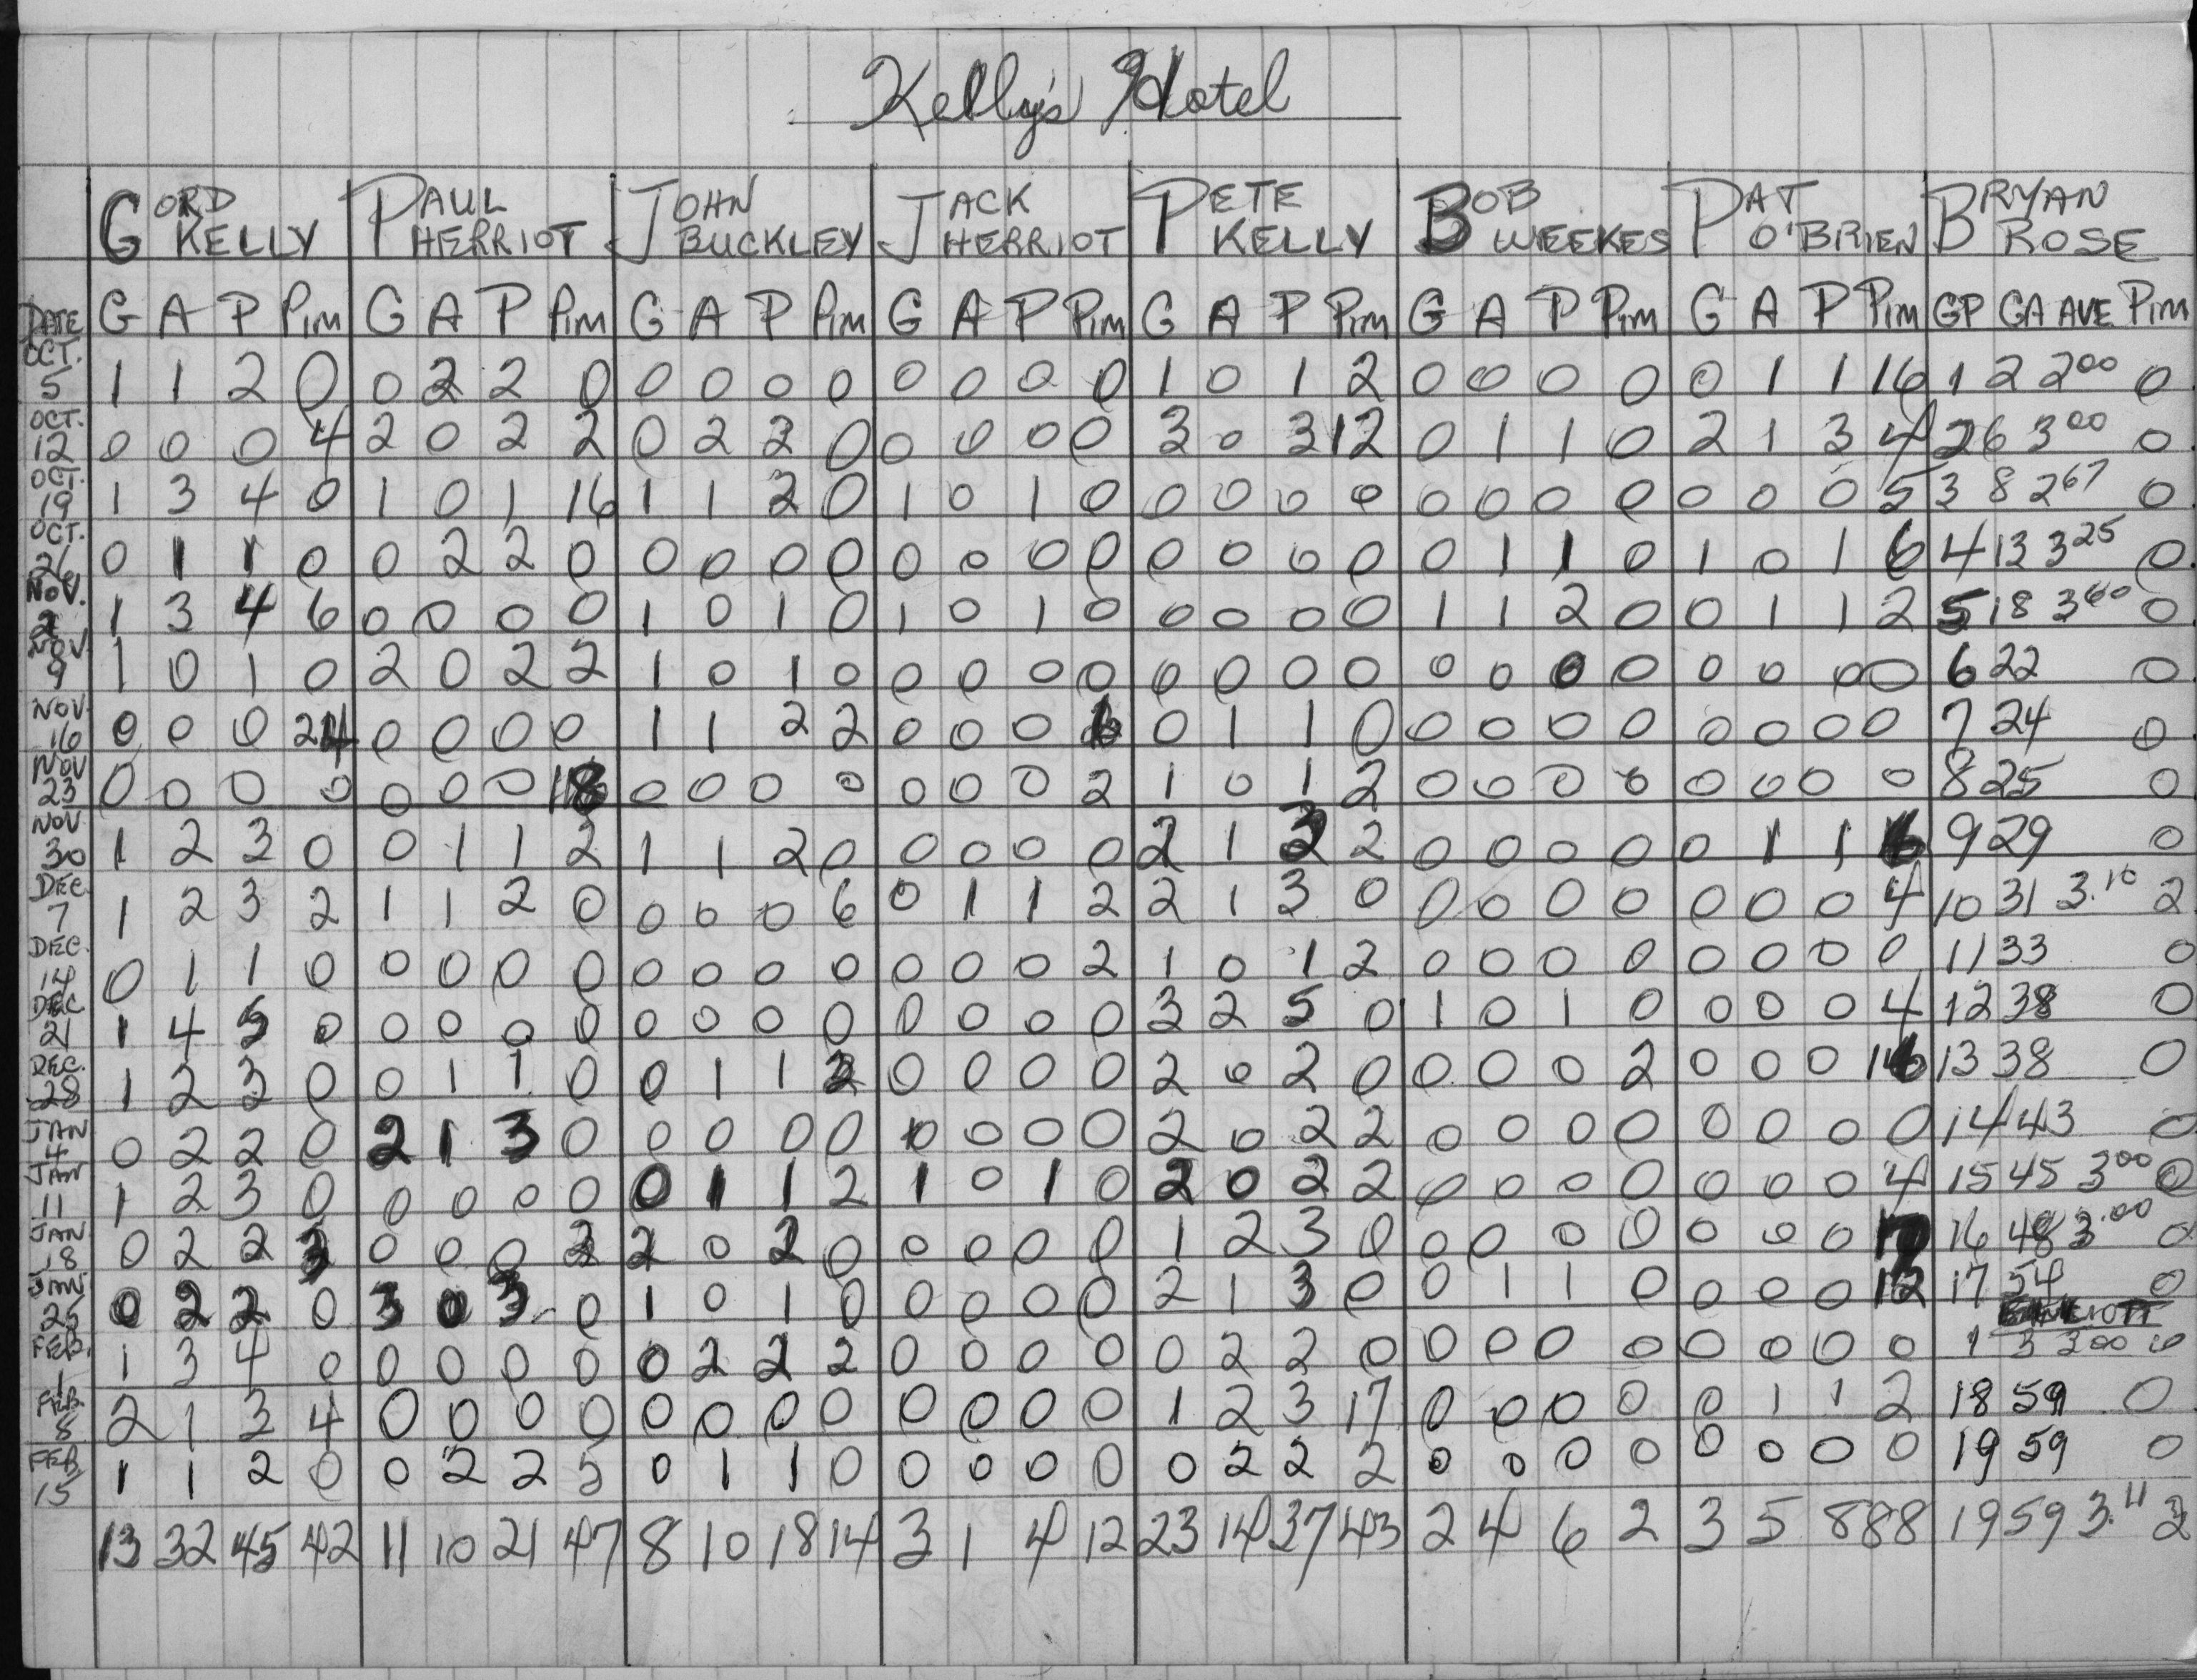 Kelly's Hotel
GORD KELLY PAUL HERRIOT JOHN BUCKLEY JACK HERRIOT PETE KELLY BOB WEEKES PAT O'BRIEN BRYAN ROSE
DATE G A P Pim G A P Pim G A P Pim G A P Pim G A P Pim G A P Pim G A P Pim GP GA AVE Pim
OCT. 5 1 1 2 0 0 2 2 0 0 0 0 0 0 0 0 0 1 0 1 2 0 0 0 0 0 1 1 16 1 2 2.00 0
OCT. 12 0 0 0 4 2 0 2 2 0 2 2 0 0 0 0 0 3 0 3 12 0 1 1 0 2 1 3 4 2 6 3.00 0
OCT. 19 1 3 4 0 1 0 1 16 1 1 2 0 1 0 1 0 0 0 0 0 0 0 0 0 0 0 0 5 3 8 2.67 0
OCT. 26 0 1 1 0 0 2 2 0 0 0 0 0 0 0 0 0 0 0 0 0 0 1 1 0 1 0 1 6 4 13 3.25 0
NOV. 2 1 3 4 6 0 0 0 0 1 0 1 0 1 0 1 0 0 0 0 0 1 1 2 0 0 1 1 2 5 18 3.60 0
NOV. 9 1 0 1 0 2 0 2 2 1 0 1 0 0 0 0 0 0 0 0 0 0 0 0 0 0 0 0 0 6 22 0
NOV. 16 0 0 0 24 0 0 0 0 1 1 2 2 0 0 0 0 1 1 0 0 0 0 0 0 0 0 0 7 24 0
NOV 23 0 0 0 0 0 0 0 18 0 0 0 0 0 0 0 2 1 0 1 2 0 0 0 0 0 0 0 0 8 25 0
NOV 30 1 2 3 0 0 1 1 2 1 1 2 0 0 0 0 0 2 1 3 2 0 0 0 0 0 1 1 9 29 0
DEC 7 1 2 3 2 1 1 2 0 0 0 0 6 0 1 1 2 2 1 3 0 0 0 0 0 0 0 0 4 10 31 3.10 2
DEC. 14 0 1 1 0 0 0 0 0 0 0 0 0 0 0 0 2 1 0 1 2 0 0 0 0 0 0 0 0 11 33 0
DEC 21 1 4 5 0 0 0 0 0 0 0 0 0 0 0 0 0 3 2 5 0 1 0 1 0 0 0 0 4 12 38 0
DEC. 28 1 2 3 0 0 1 1 0 0 1 1 2 0 0 0 0 2 0 2 0 0 0 0 2 0 0 0 16 13 38 0
JAN 4 0 2 2 0 2 1 3 0 0 0 0 0 0 0 0 0 2 0 2 2 0 0 0 0 0 0 0 0 14 43 0
JAN 11 1 2 3 0 0 0 0 0 0 1 1 2 1 0 1 0 2 0 2 2 0 0 0 0 0 0 0 4 15 45 3.00 0
JAN 18 0 2 2 0 0 0 2 2 0 2 0 0 0 0 0 1 2 3 0 0 0 0 0 0 0 0 16 48 3.00 0
JAN 25 0 2 2 0 3 0 3 0 1 0 1 0 0 0 0 0 2 1 3 0 0 1 1 0 0 0 0 12 17 54 0
FEB. 1 1 3 4 0 0 0 0 0 0 2 2 2 0 0 0 0 0 2 2 0 0 0 0 0 0 0 0 0 1 3 3.00 0
FEB. 8 2 1 3 4 0 0 0 0 0 0 0 0 0 0 0 0 1 2 3 17 0 0 0 0 0 1 1 2 18 59 0
FEB. 15 1 1 2 0 0 2 2 5 0 1 1 0 0 0 0 0 0 2 2 2 0 0 0 0 0 0 0 0 19 59 0
13 32 45 42 11 10 21 47 8 10 18 14 3 1 4 12 23 14 37 43 2 4 6 2 3 5 8 88 19 59 3.11 2